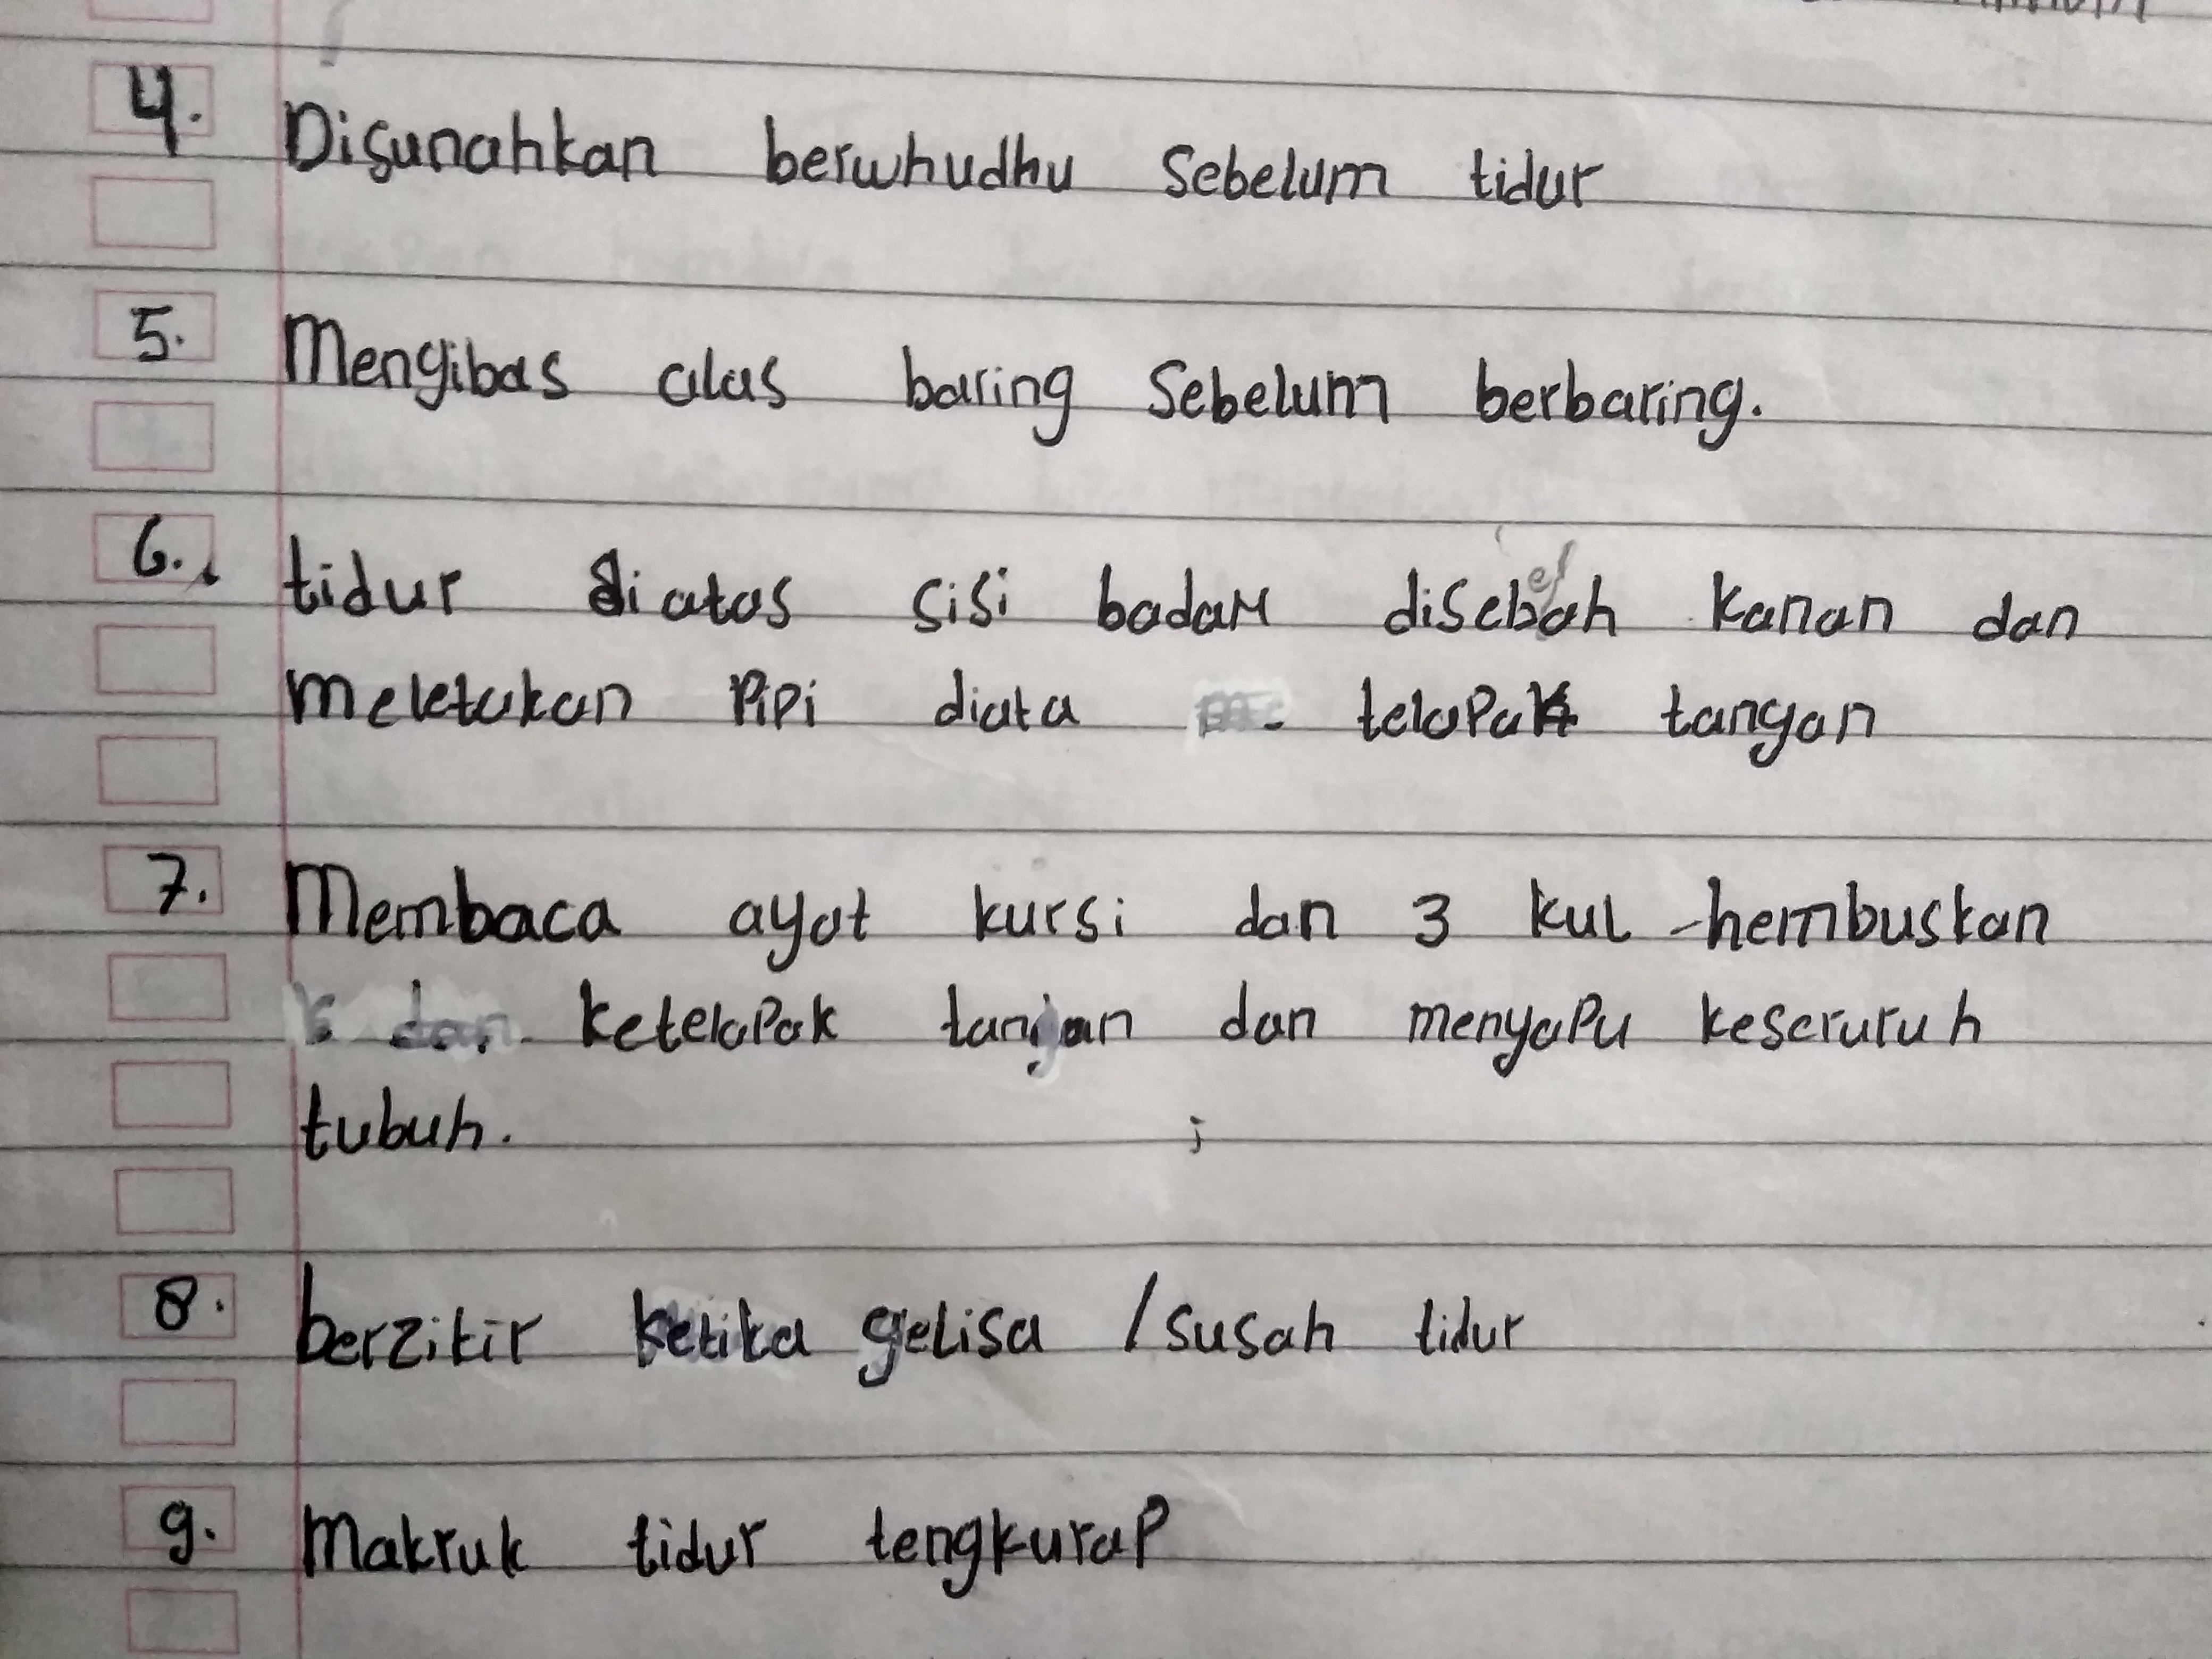 4. Disunahkan berwhudhu sebelum tidur
5. Mengibas alas baring sebelum berbaring.
6. tidur diatas sisi badan disebelah kanan dan
meletakan pipi diata telapak tangan
7. Membaca ayat kursi dan 3 kul -hembuskan
ketelapak tangan dan menyapu keseruruh
tubuh.
8. berzikir ketika gelisa / susah tidur
9. Makruk tidur tengkurap